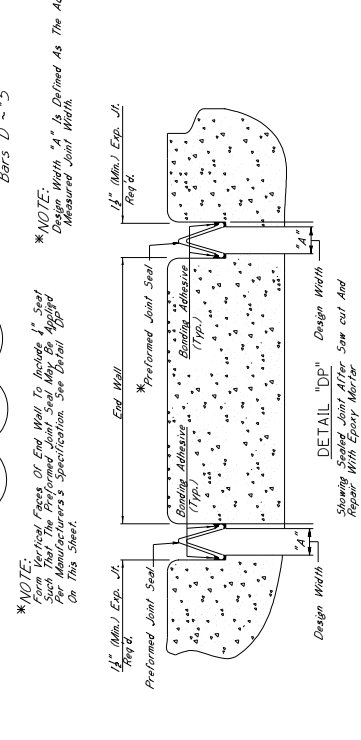 Bars D ~ #5
*NOTE:
Form Vertical Faces Of End Wall To Include 1" Seat
Such That The Preformed Joint Seal May Be Applied
Per Manufacturer's Specification. See Detail "DP"
On This Sheet.
*NOTE:
Design Width "A" Is Defined As The Ac
Measured Joint Width.
1½" (Min.) Exp. Jt.
Req'd.
End Wall
1½" (Min.) Exp. Jt.
Req'd.
Preformed Joint Seal
*Preformed Joint Seal
Bonding Adhesive
(Typ.)
Bonding Adhesive
(Typ.)
"A"
"A"
Design Width
Design Width
DETAIL "DP"
Showing Sealed Joint After Saw cut And
Repair With Epoxy Mortar